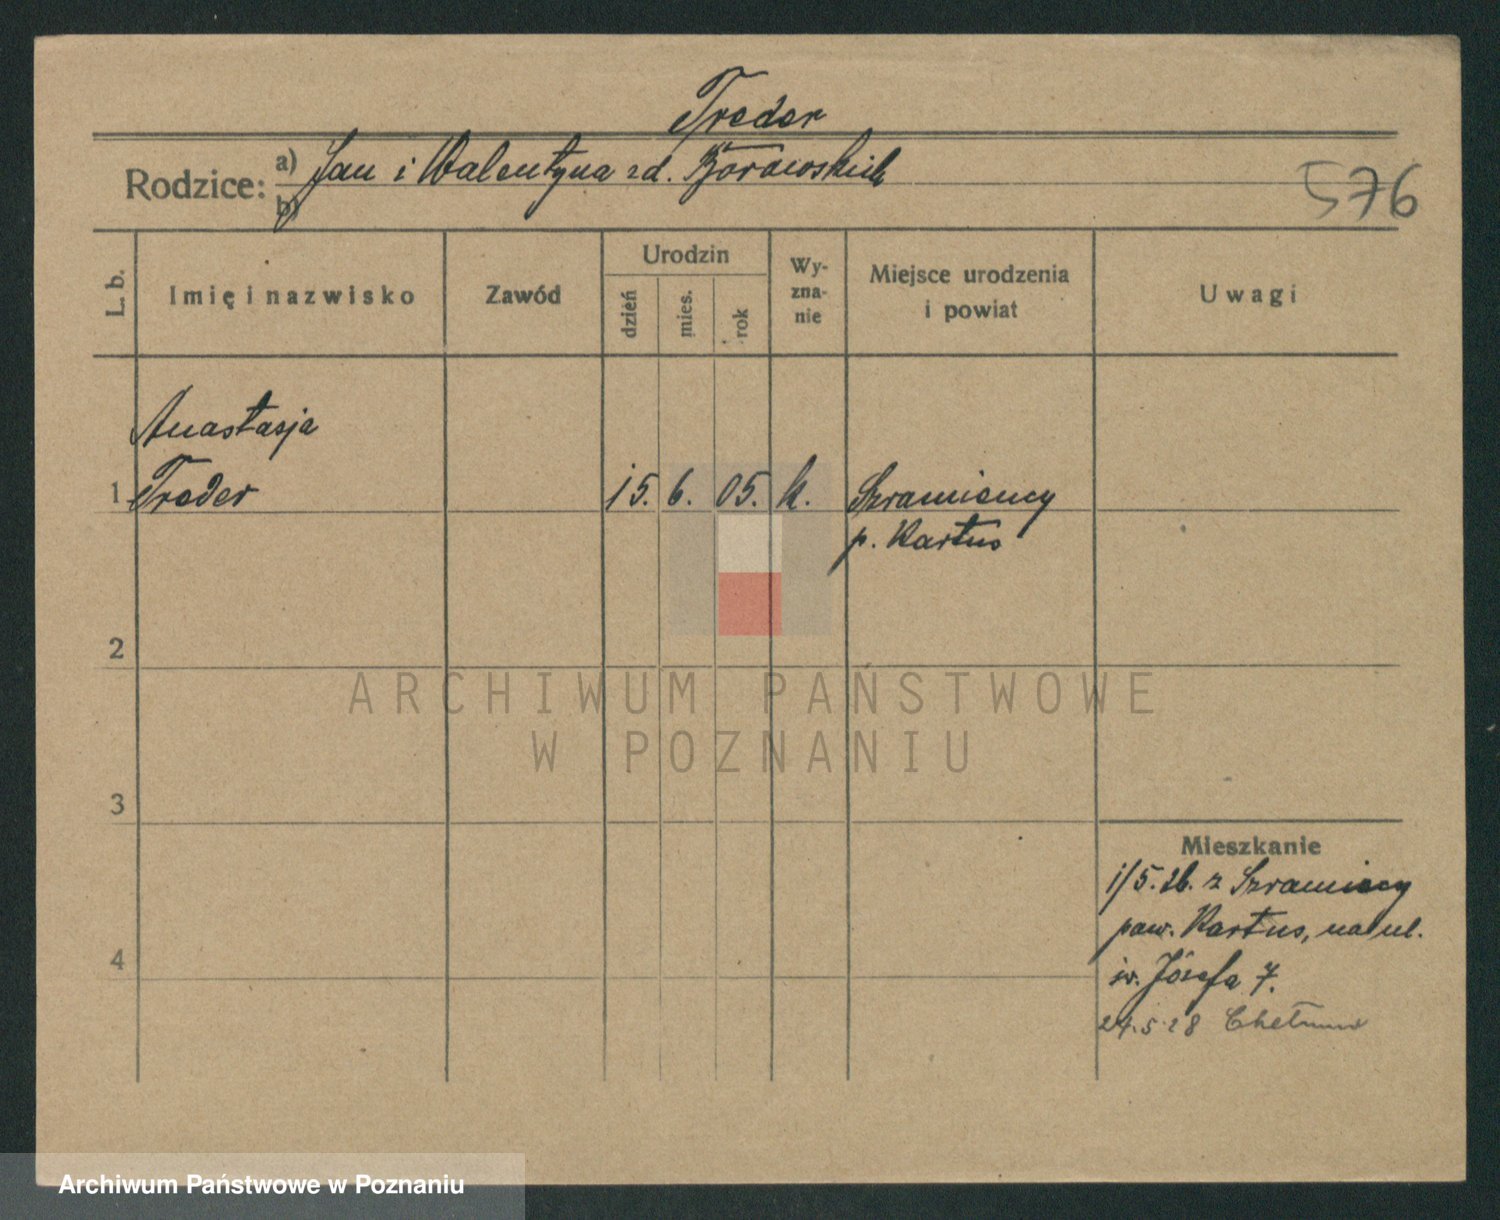 Treder
Rodzice: a) Jan i Walentyna zd. Borowskich
b)
576
L. b.
Imię i nazwisko
Zawód
Urodzin
dzień
mies.
rok
Wy-
zna-
nie
Miejsce urodzenia
i powiat
Uwagi
Anastazja
1 Treder 15. 6. 05. k. Szramnicy
p. Kartus
2
ARCHIWUM PAŃSTWOWE
W POZNANIU
3
Mieszkanie
1/5.26. z Szramnicy
pow. Kartus, na ul.
św. Józefa 7.
4
24.5.28 Chełmno
Archiwum Państwowe w Poznaniu